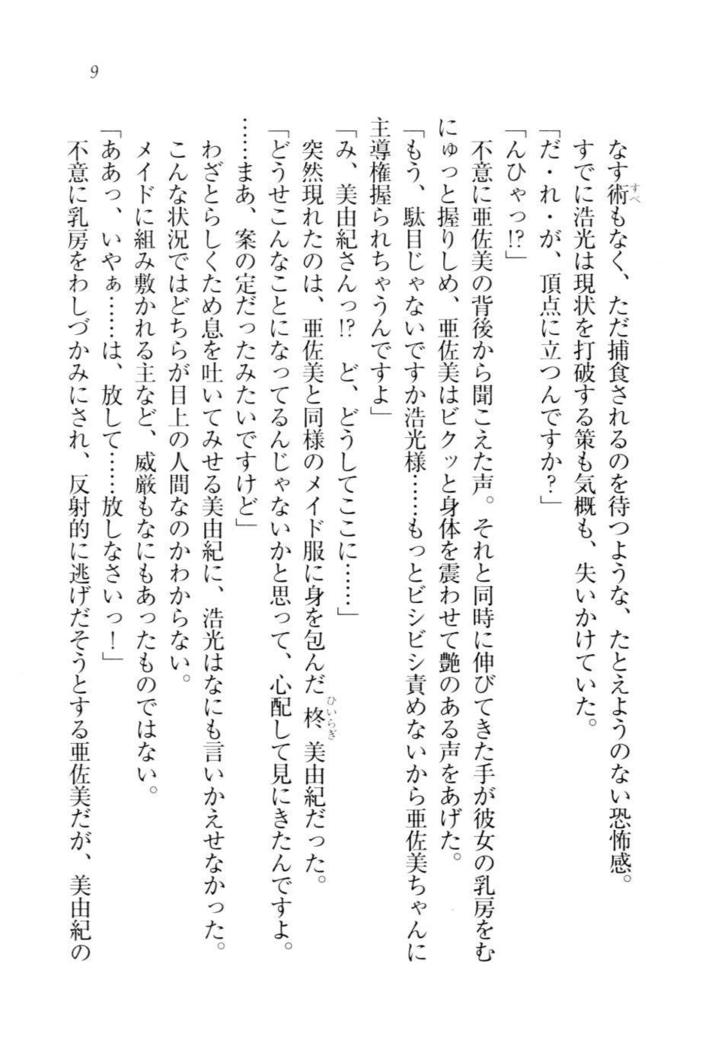 9
なす術もなく、ただ捕食されるのを待つような、たとえようのない恐怖感。
すでに浩光は現状を打破する策も気概も、失いかけていた。
「だ・れ・が、頂点に立つんですか？」
「んひゃっ!?」
不意に亜佐美の背後から聞こえた声。それと同時に伸びてきた手が彼女の乳房をむ
にゅっと握りしめ、亜佐美はビクッと身体を震わせて艶のある声をあげた。
「もう、駄目じゃないですか浩光様……もっとビシビシ責めないから亜佐美ちゃんに
主導権握られちゃうんですよ」
「み、美由紀さんっ!?　ど、どうしてここに……」
突然現れたのは、亜佐美と同様のメイド服に身を包んだ柊美由紀だった。
「どうせこんなことになってるんじゃないかと思って、心配して見にきたんですよ。
……まあ、案の定だったみたいですけど」
わざとらしくため息を吐いてみせる美由紀に、浩光はなにも言いかえせなかった。
こんな状況ではどちらが目上の人間なのかわからない。
メイドに組み敷かれる主など、威厳もなにもあったものではない。
「ああっ、いやぁ……は、放して……放しなさいっ！」
不意に乳房をわしづかみにされ、反射的に逃げだそうとする亜佐美だが、美由紀の